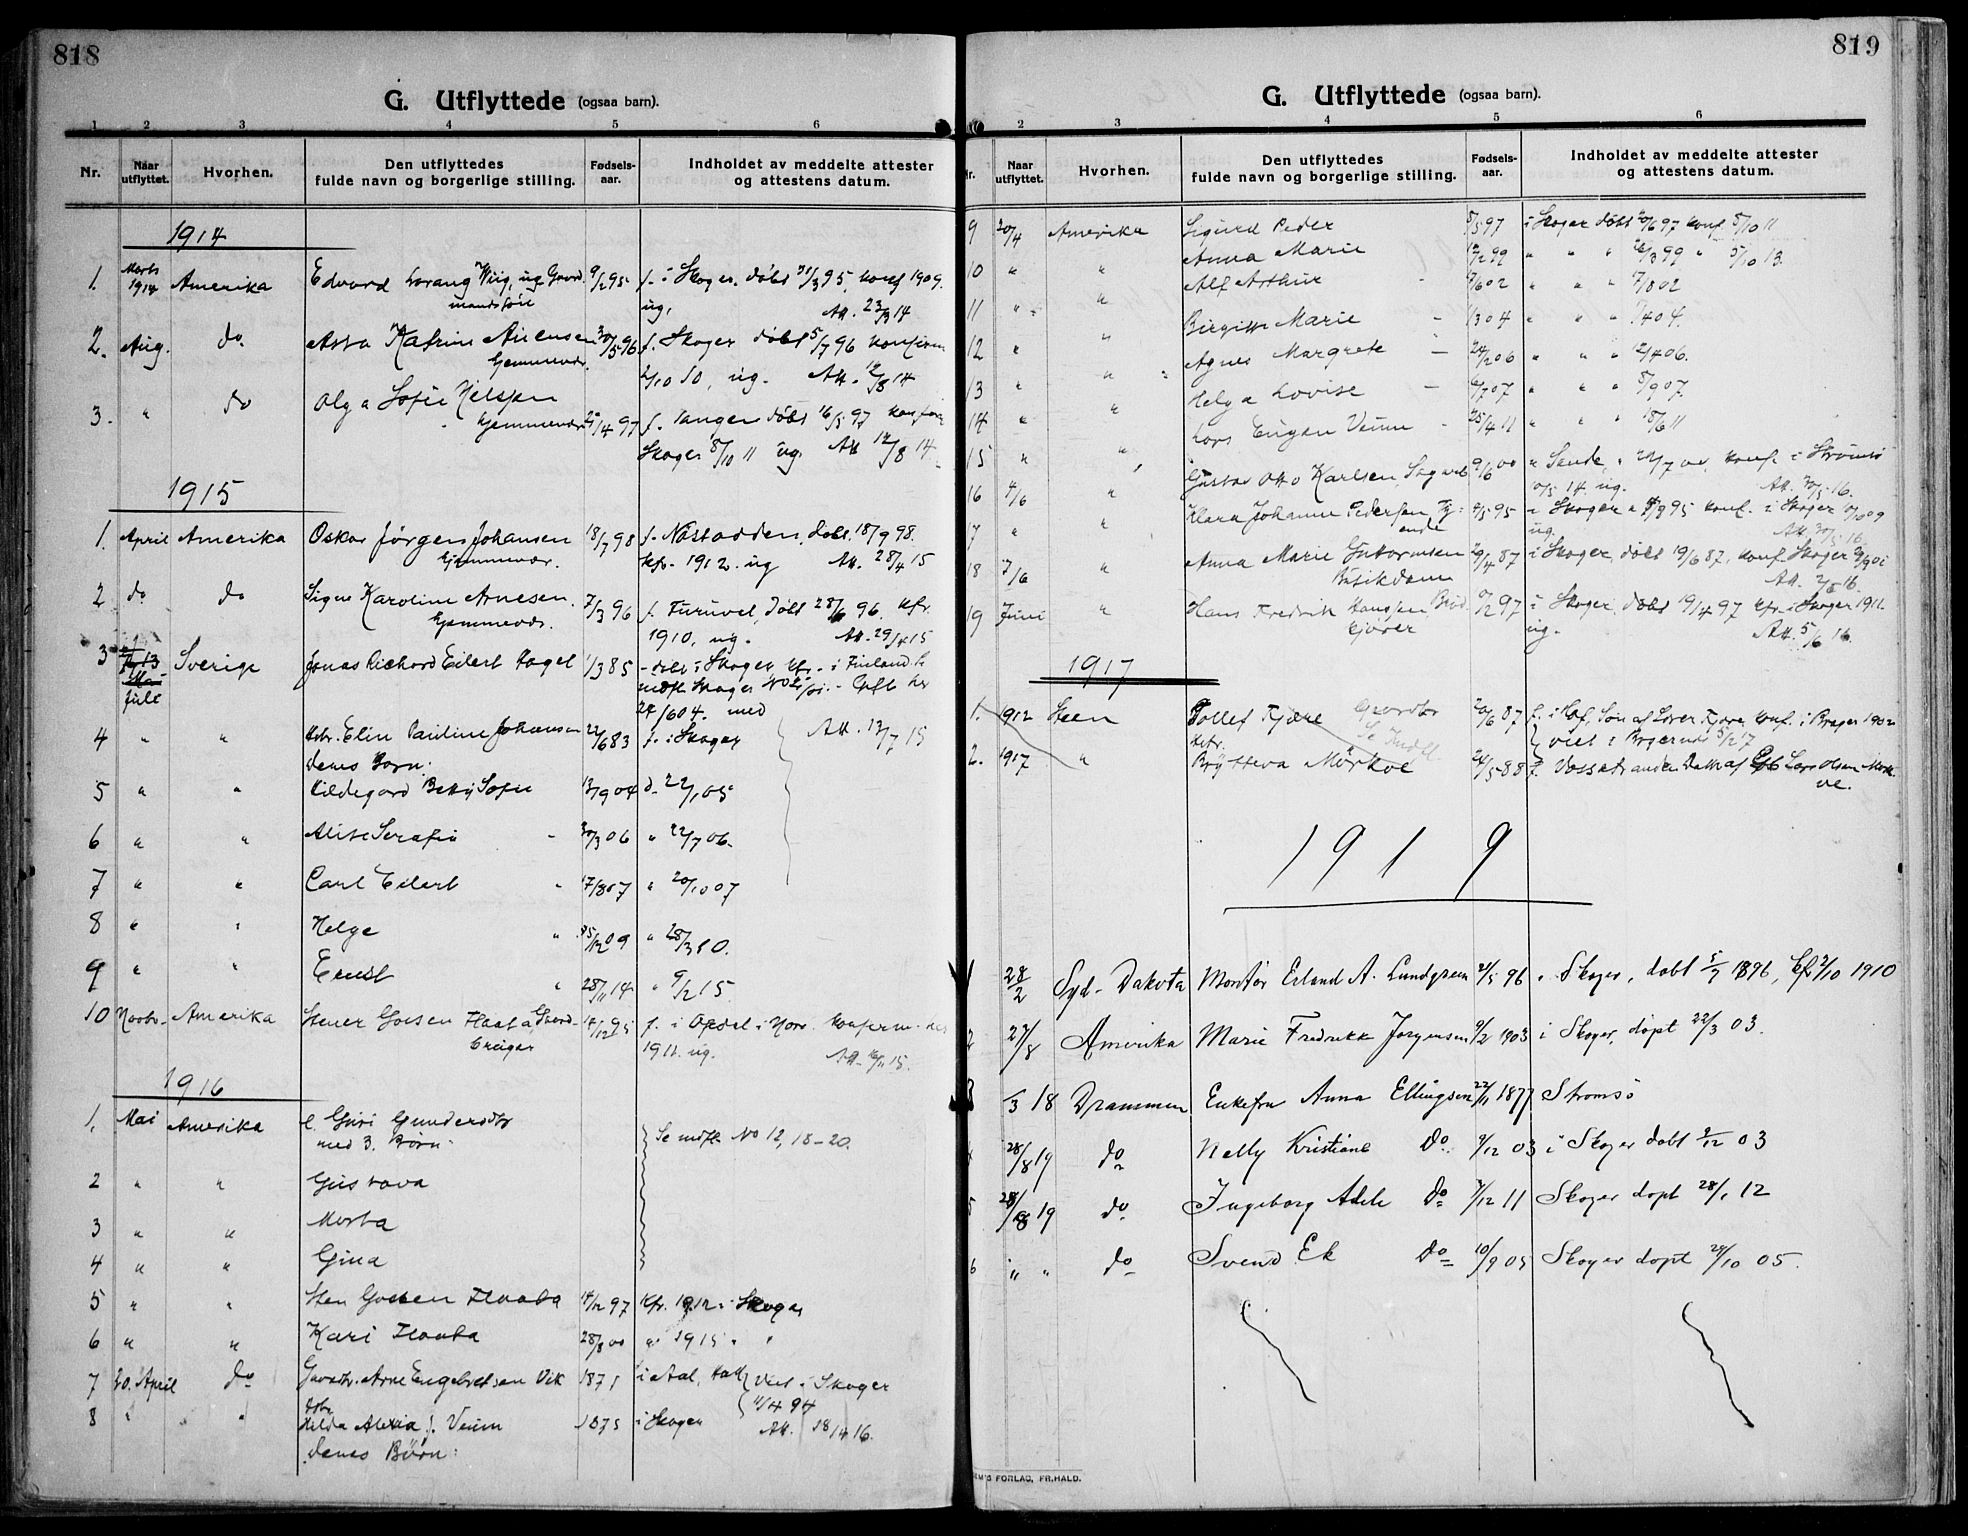 818
G. Utflyttede (ogsaa barn).
1 2 3 4 5 6
Nr. Naar utflyttet. Hvorhen. Den utflyttedes fulde navn og borgerlige stilling. Fødsels-aar. Indholdet av meddelte attester og attestens datum.
1914
1. Marts 1914 Amerika Edvard Lorang Wiig, ug. Gaard- 9/2 95 f. i Skoger. døbt 31/3 95, konf 1909.
mandssøn ug, Att. 23/3 14
2. Aug. do Asta Katrine Arnesen 30/5 96 f. Skoger døbt 5/7 96 konfirm
Hjemmevær. 2/10 10, ug. Att. 12/8 14
3. " do Olga Sofie Nelsen
Hjemmevær 25/4 97 f. Tanger døbt 16/5 97 konfirm
Skoger 8/10 11 ug. Att 12/8 14
1915
1. April Amerika Oskar Jørgen Johansen 18/7 98 f. Nøstodden, døbt 18/9 98.
Hjemmevær. kfr. 1912. ug Att. 28/4 15
2 do do Signe Karoline Arnesen. 7/3 96 f. Furuvel, døbt 28/6 96. kfr.
Hjemmevær. 1910, ug. Att. 29/4 15
3 Juli Sverige Jonas Richard Eilert Hagel 1/3 85 døbt i Skoger kfr. i Finland
24/6 04. med
4 " " Hstr. Elin Pauline Johansen 22/6 83 f. i Skoger Att. 13/7 15
deres Børn:
5 " " Hildegard Betty Sofie 13/9 04 d. 22/1 05
6 " " Alise Serafie 30/3 06 " 22/7 06.
7 " " Carl Eilert " 17/8 07 " 20/10 07
8 " " Helge " 25/12 09 " 28/3 10.
9 " " Ernst " 28/11 14 " 9/2 15.
10 Novbr. Amerika Stener Goesen Flaata, Gaard- 14/12 95 f. i Opdal i Num. konfirm. her
bruger 1911. ug. Att. 16/11 15.
1916
1. Mai Amerika E. Guri Gundersdtr
med 3 Børn: Se mdfl. No 12, 18-20.
2 " " Gustava
3 " " Marta
4 " " Gina
5 " " Sten Goesen Flaata 14/12 97 kfr. 1912 i Skoger
6 " " Kari Flaata 28/8 00 " 1915 " "
7 20. April do Gaardbr. Arne Engebretsen Vik 1871 i Aal, Hall. viet i Skoger
11/4 94
8 " " Hstr. Hilda Alexia f. Veum 1875 i Skoger Att. 18/4 16.
deres Børn:
819
G. Utflyttede (ogsaa barn).
2 3 4 5 6
Nr. Naar utflyttet. Hvorhen. Den utflyttedes fulde navn og borgerlige stilling. Fødsels-aar. Indholdet av meddelte attester og attestens datum.
9 20/4 Amerika Sigurd Peder 5/5 97 i Skoger døbt 20/6 97 konf. 5/10 11
10 " " Anna Marie 12/2 99 " " " 26/3 99 " 5/10 13.
11 " " Alf Arthur 7/6 02 " " " 7/8 02
12 " " Birgitte Marie 1/3 04 " " " 7/4 04.
13 " " Agnes Margrete 24/2 06 " " " 12/4 06.
14 " " Helga Lovise 6/7 07 " " " 8/9 07.
15 " " Lars Eugen Veum 25/4 11 " " " 18/6 11
16 4/6 " Gustav Otto Karlsen, Sagarb 9/6 00 " Sande, " 22/7 00, konf. i Strømsø
14. ug. Att. 30/5 16.
17 " " Klara Johanne Pedersen, Tj: 4/5 95 i Skoger konf. i Skoger 10/10 09
ende ug. Att. 30/5 16.
18 7/6 " Anna Marie Guttormsen 29/4 87 i Skoger, døbt 19/6 87, konf. Skoger
Butikdame Att. 2/6 16.
19 Juni " Hans Fredrik Hansen, Brød 97 i Skoger, døbt 19/4 97 kfr. i Skoger 1911.
kjører ug. Att. 5/6 16.
1917
1. 1912 Steen Tollef Fjære Gaardbr 20/6 87 f. i Hof, Søn af Lover Fjære, konf. i Brager 1902
Se Indfl. viet i Bragernæs 5/2 17
2. 1917 " Hstr. Brytteva Mørkve 24/5 88 f. Vossestranden Datter af Lars Olsen Mørk
ve.
1919
1 28/2 Syd-Dakota Montør Erland A. Lundgreen 21/5 96 i Skoger, døbt 5/7 1896, kfr 2/10 1910
2 27/8 Amerika Marie Fredrikke Jørgensen 9/2 1903 i Skoger, døpt 22/3 03.
3 /3 18 Drammen Enkefru Anna Ellingsen 22/11 1877 Strømsø
28/8 19 do Nelly Kristiane do 9/12 03 i Skoger døbt 9/12 03
5 28/8 19 do Ingeborg Adele do 7/12 11 Skoger døpt 28/1 12
6 " " do Svend Ek do 10/9 05 Skoger døpt 29/10 05.
FORLAG, FR.HALD.